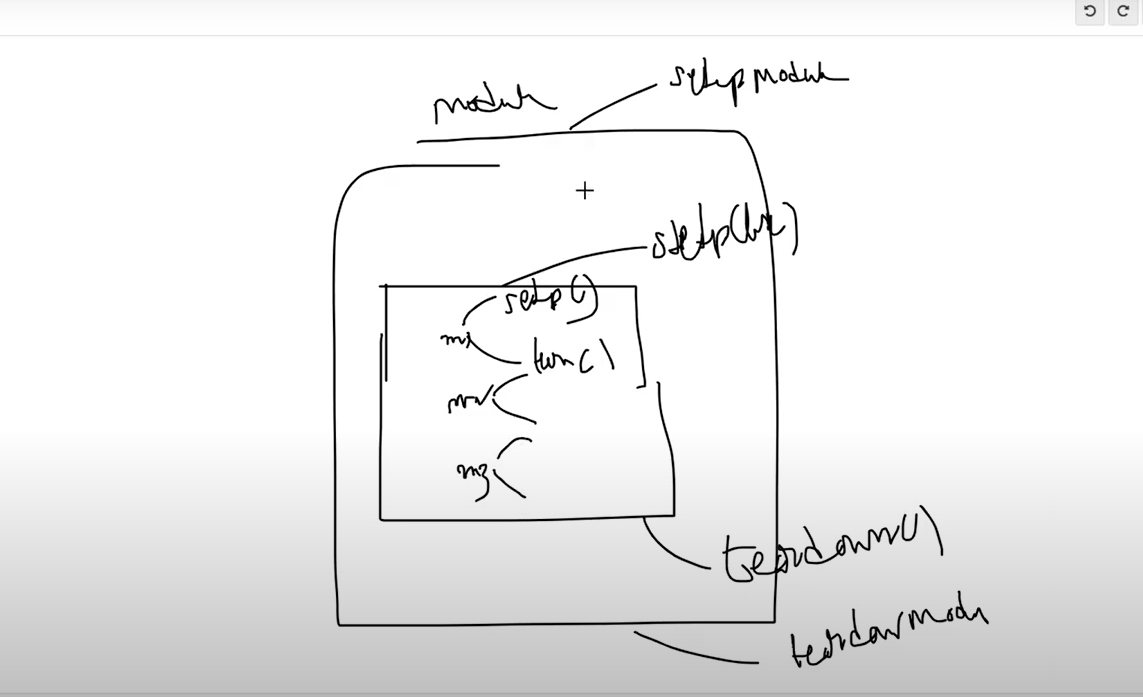 module
setup module
setup(
setup()
m1
m2
m3
teardown()
teardown modu